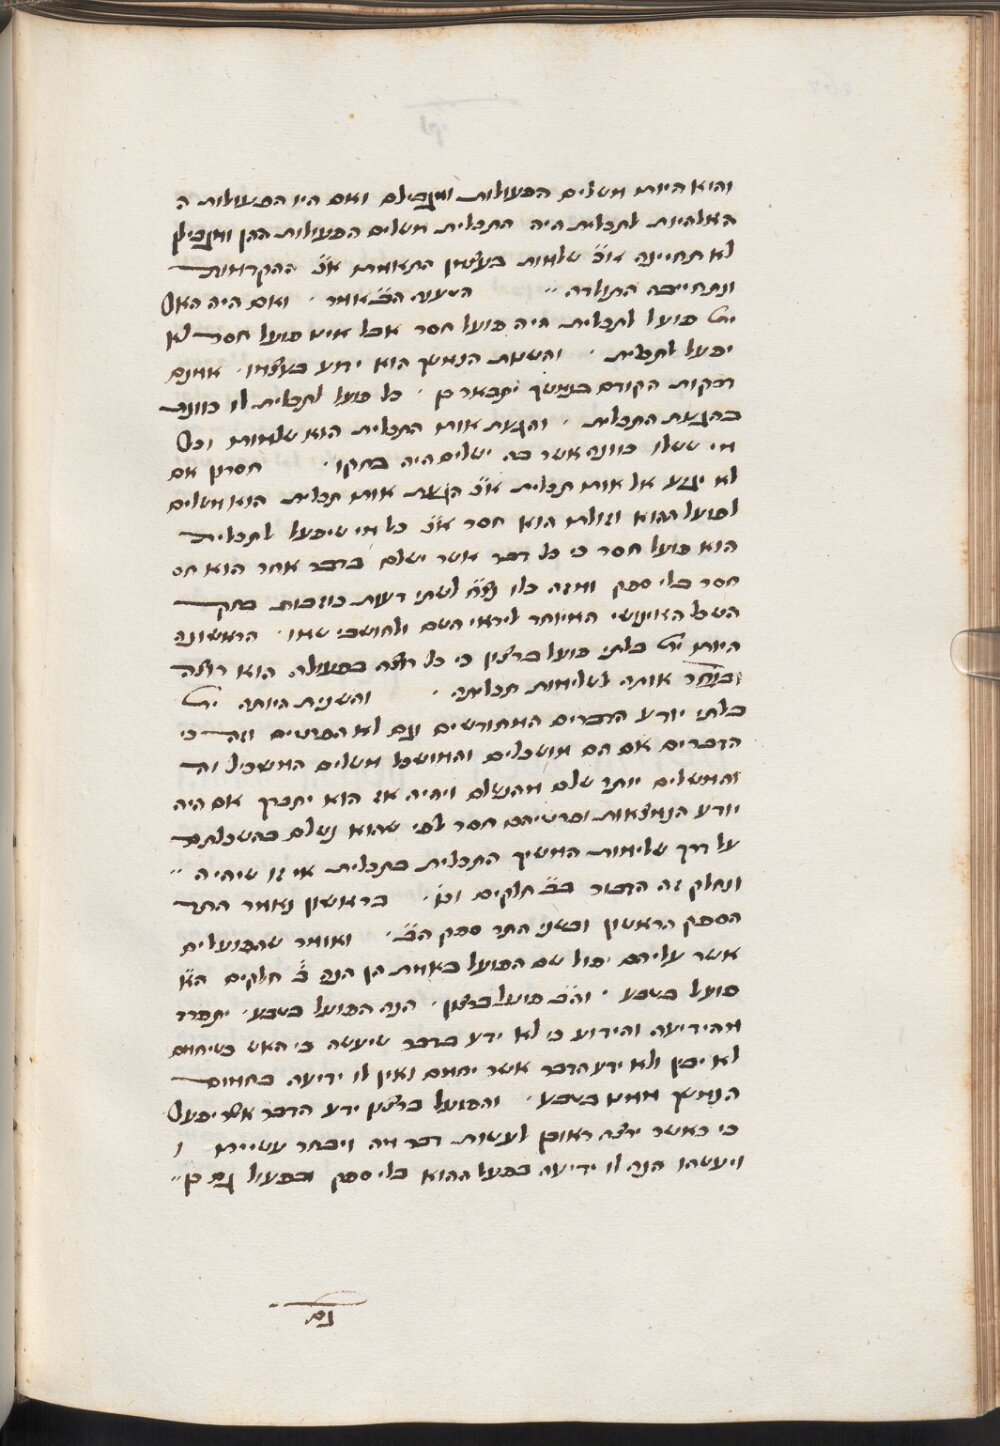 והוא היות משלים הפעולות ומגבילם ואם היו הפעולות ה
האלהיות לתכלית היה התכלית משלים הפעולות ההן ומגבילן
לא תהיינה א״כ שלמות בעצמן התאמת א״כ ההקדמות
ונתחייבה התולדה הטענה הב׳ אמר ואם היה האל
ית׳ פועל לתכלית היה פועל חסר אבל אינו פועל חסר לא
יפעל לתכלית והשמת הנמשך הוא ידוע בעצמו אמנם
דבקות הקודם בנמשך יתבאר כן כל פועל לתכלית לו כוונה
בהגעת התכלית והגעת אותו התכלית הוא שלמות וכל
מי ששלו כוונה אשר בה ישלים היה בחקו חסרון אם
לא יגיע אל אותו תכלית א״כ הגעת אותו תכלית הוא משלים
לפועל ההוא וזולתו הוא חסר א״כ כל מי שיפעל לתכלית
הוא פועל חסר כי כל דבר אשר ישלם בדבר אחר הוא חס
חסר בלי ספק ומזה כלו לשתי דעות כוזבות בחק
השכל האנושי המיוחד ליראי השם ולחושבי שמו הראשונה
היות ית׳ בלתי פועל ברצון כי כל רוצה בפעולה הוא רוצה
ובוחר אותה לשלימות תכליתה והשנית היותו ית׳
בלתי יודע הדברים המחודשים וגם לא הפרטים וזה כי
הדברים אם הם מושכלים והמושכל משלים המשכיל וה
והמשלים יותר שלם מהנשלם ויהיה אז הוא יתברך אם היה
יודע הנמצאות ופרטיהם חסר לפי שהוא נשלם בהשכלתם
על דרך שלימות המשיך התכלית בתכלית אי זו שיהיה
ונחלק זה הדבור בב׳ חלקים בראשון נאמר התר
הספק הראשון ובשני התר ספק הב׳ ואומר שהפועלים
אשר עליהם יפול שם הפועל באמת הן הנה ב׳ חלקים הא׳
פועל בטבע והב׳ פועל ברצון הנה הפועל בטבע יתפרד
מהידיעה והידוע כי לא ידע בדבר שיעשה כי האש כשיחמם
לא יבין ולא ידע הדבר אשר יחמם ואין לו ידיעה בחמום
הנמשך ממנו בטבע והפועל ברצון ידע הדבר אשר יפעל
כי כאשר ירצה ראובן לעשות דבר מה ויבחר עשייתו ו
ויעשהו הנה לו ידיעה בפעל ההוא בלי ספק ובפעול גם כן
גם